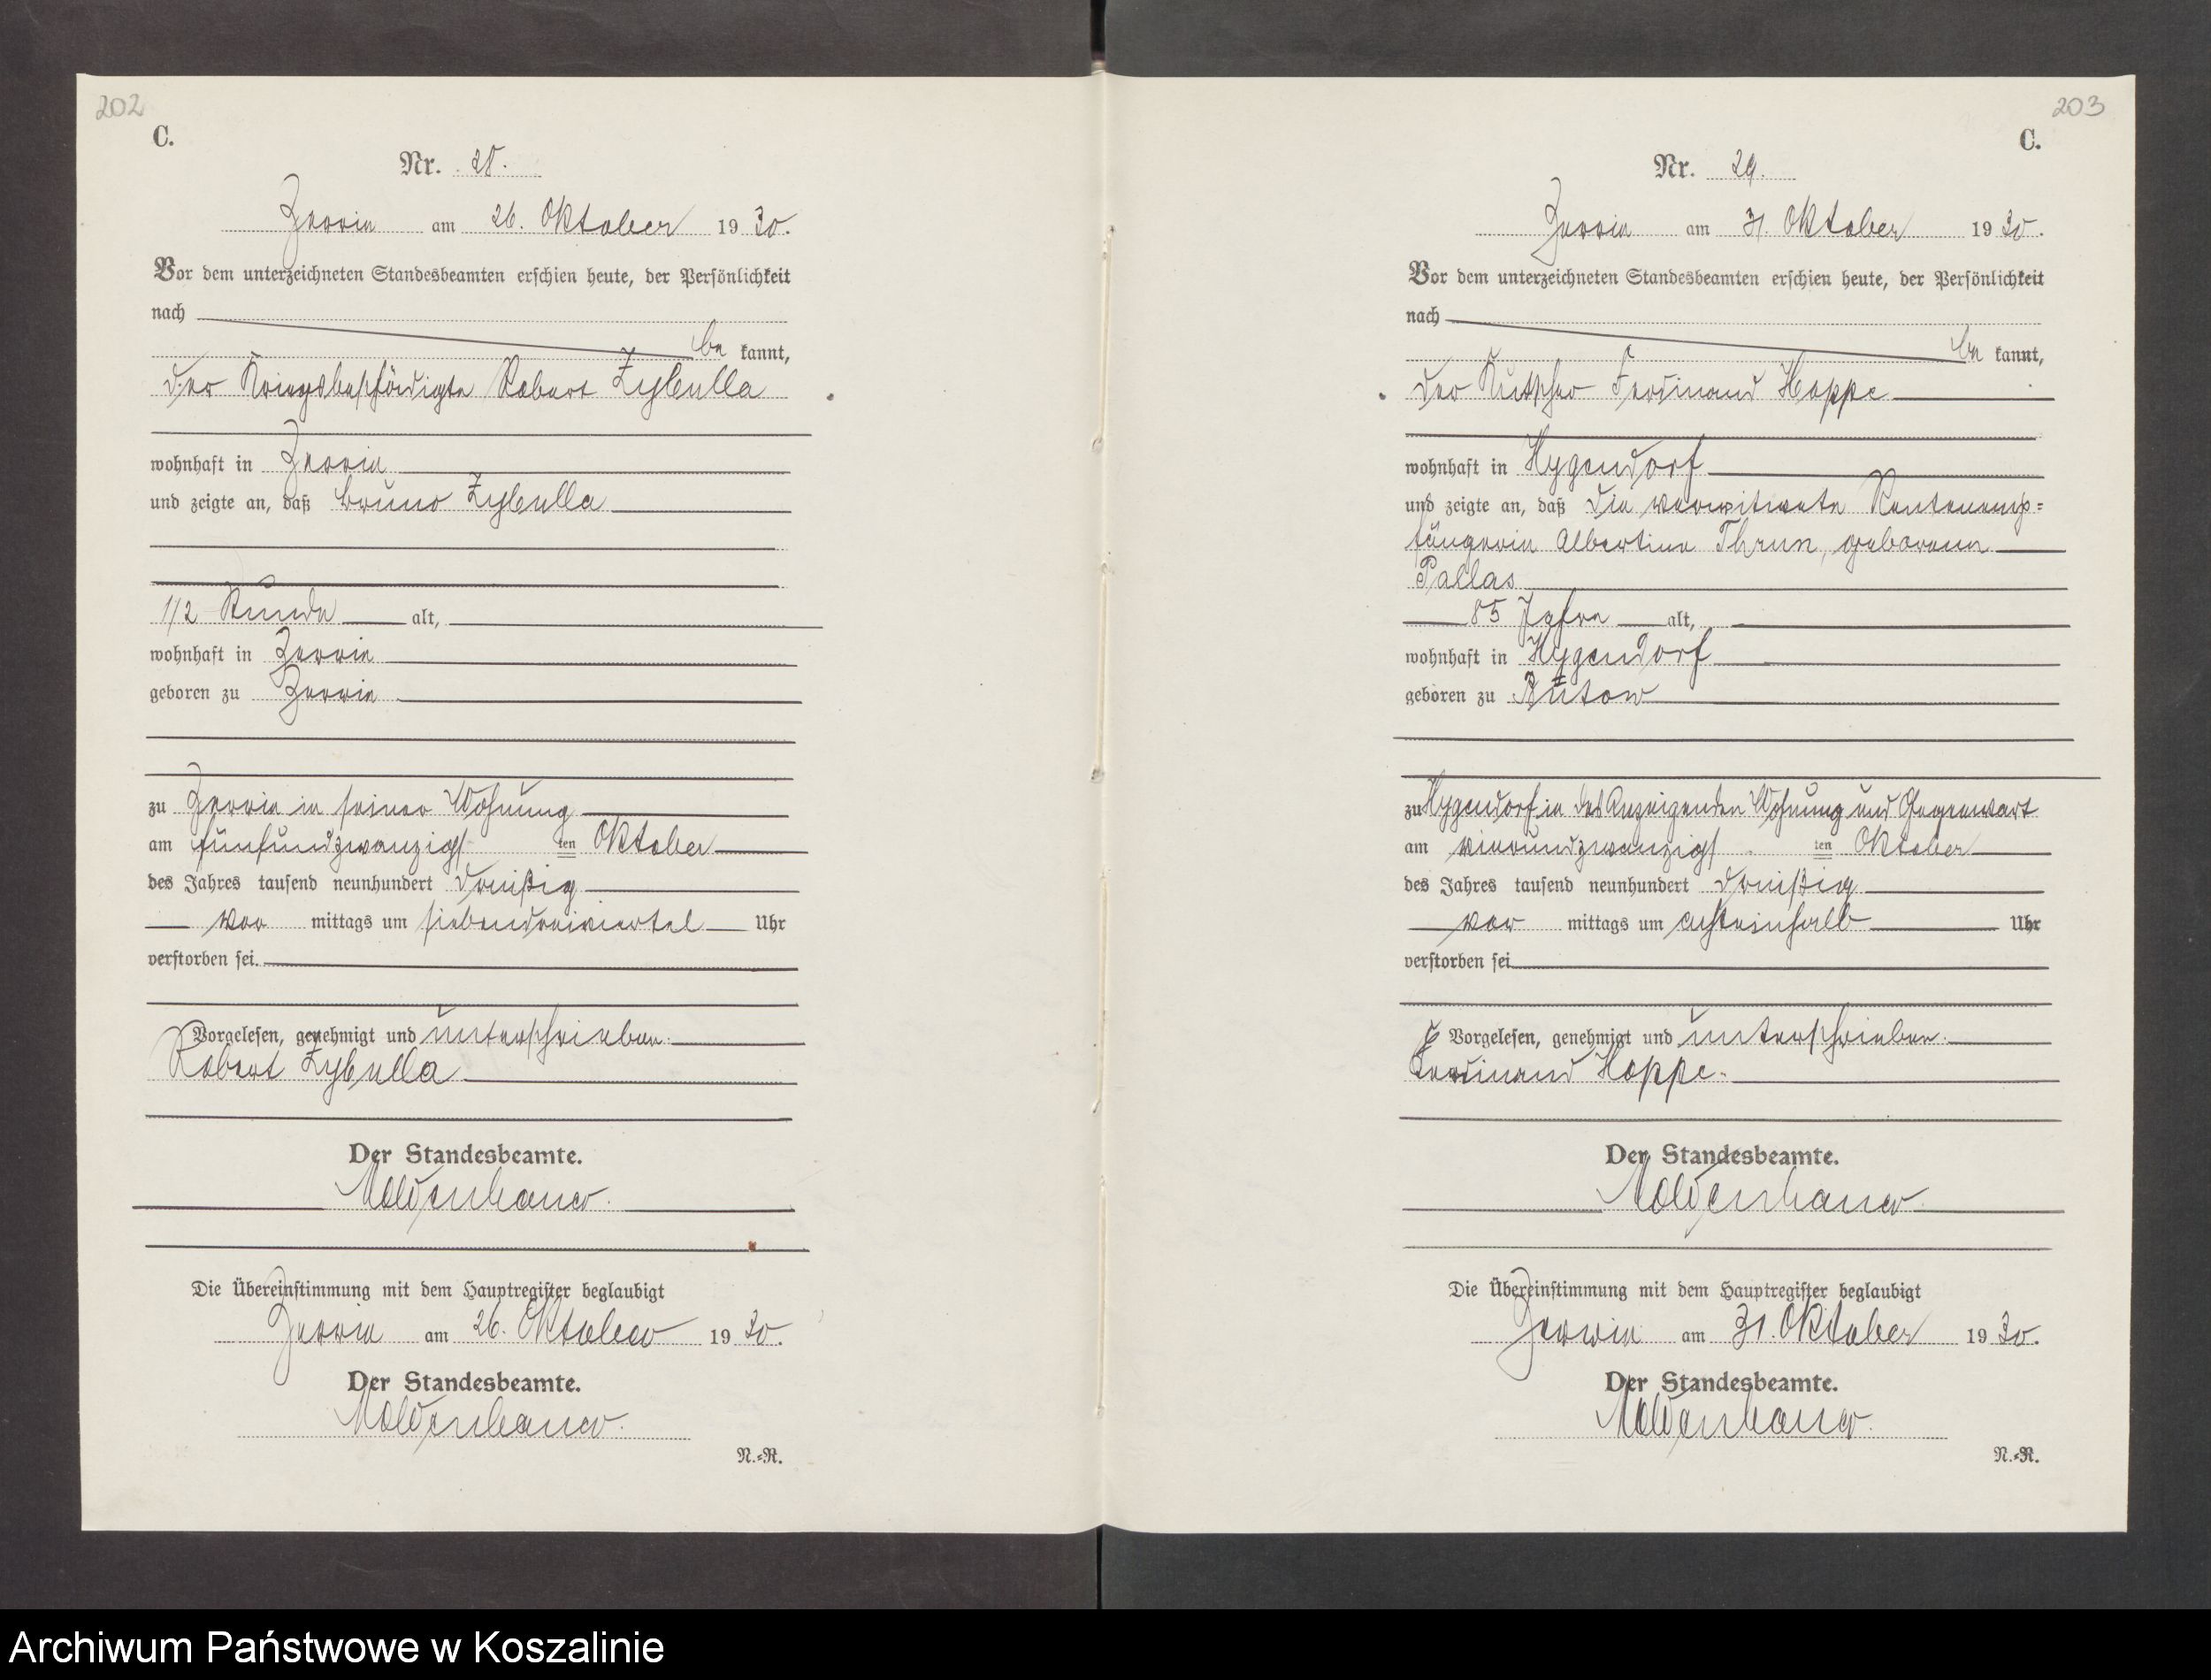 202
C.
Nr. 28.
Zerrin am 26. Oktober 1930.
Vor dem unterzeichneten Standesbeamten erschien heute, der Persönlichkeit
nach
be kannt,
der Kriegsbeschädigte Robert Zybulla
wohnhaft in Zerrin
und zeigte an, daß Bruno Zybulla
1/2 Stunde alt,
wohnhaft in Zerrin
geboren zu Zerrin
zu Zerrin in seiner Wohnung
am fünfundzwanzigs ten Oktober
des Jahres tausend neunhundert dreißig
vor mittags um siebendreiviertel Uhr
verstorben sei.
Vorgelesen, genehmigt und unterschrieben.
Robert Zybulla
Der Standesbeamte.
Moldenhauer.
Die Übereinstimmung mit dem Hauptregister beglaubigt
Zerrin am 26. Oktober 1930.
Der Standesbeamte.
Moldenhauer.
N.=R.
203
C.
Nr. 29.
Zerrin am 31. Oktober 1930.
Vor dem unterzeichneten Standesbeamten erschien heute, der Persönlichkeit
nach
be kannt,
der Kutscher Ferdinand Hoppe
wohnhaft in Hygendorf
und zeigte an, daß die verwitwete Rentenemp=
fängerin Albertine Thrun, geborene
Pallas
85 Jahre alt,
wohnhaft in Hygendorf
geboren zu Bütow
zu Hygendorf in des Anzeigenden Wohnung und Gegenwart
am vierundzwanzigs ten Oktober
des Jahres tausend neunhundert dreißig
vor mittags um achteinhalb Uhr
verstorben sei
Vorgelesen, genehmigt und unterschrieben.
Ferdinand Hoppe.
Der Standesbeamte.
Moldenhauer.
Die Übereinstimmung mit dem Hauptregister beglaubigt
Zerrin am 31. Oktober 1930.
Der Standesbeamte.
Moldenhauer.
N.=R.
Archiwum Państwowe w Koszalinie